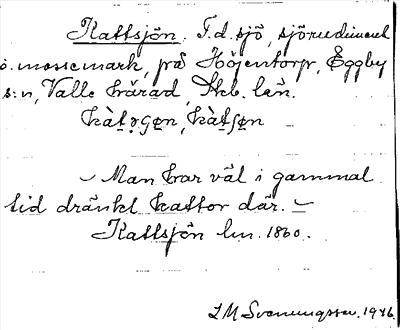 Kattsjön. F.d. sjö, sjörudiment
o. mossemark, på Höjentorp, Eggby
s:n, Valle härad, Skb. län.
kàt̠ǝgǝn, kàt̠ʃǝn
– Man har väl i gammal
tid dränkt kattor där. –
Kattsjön lm. 1860.
L M Svenungsson. 1946.